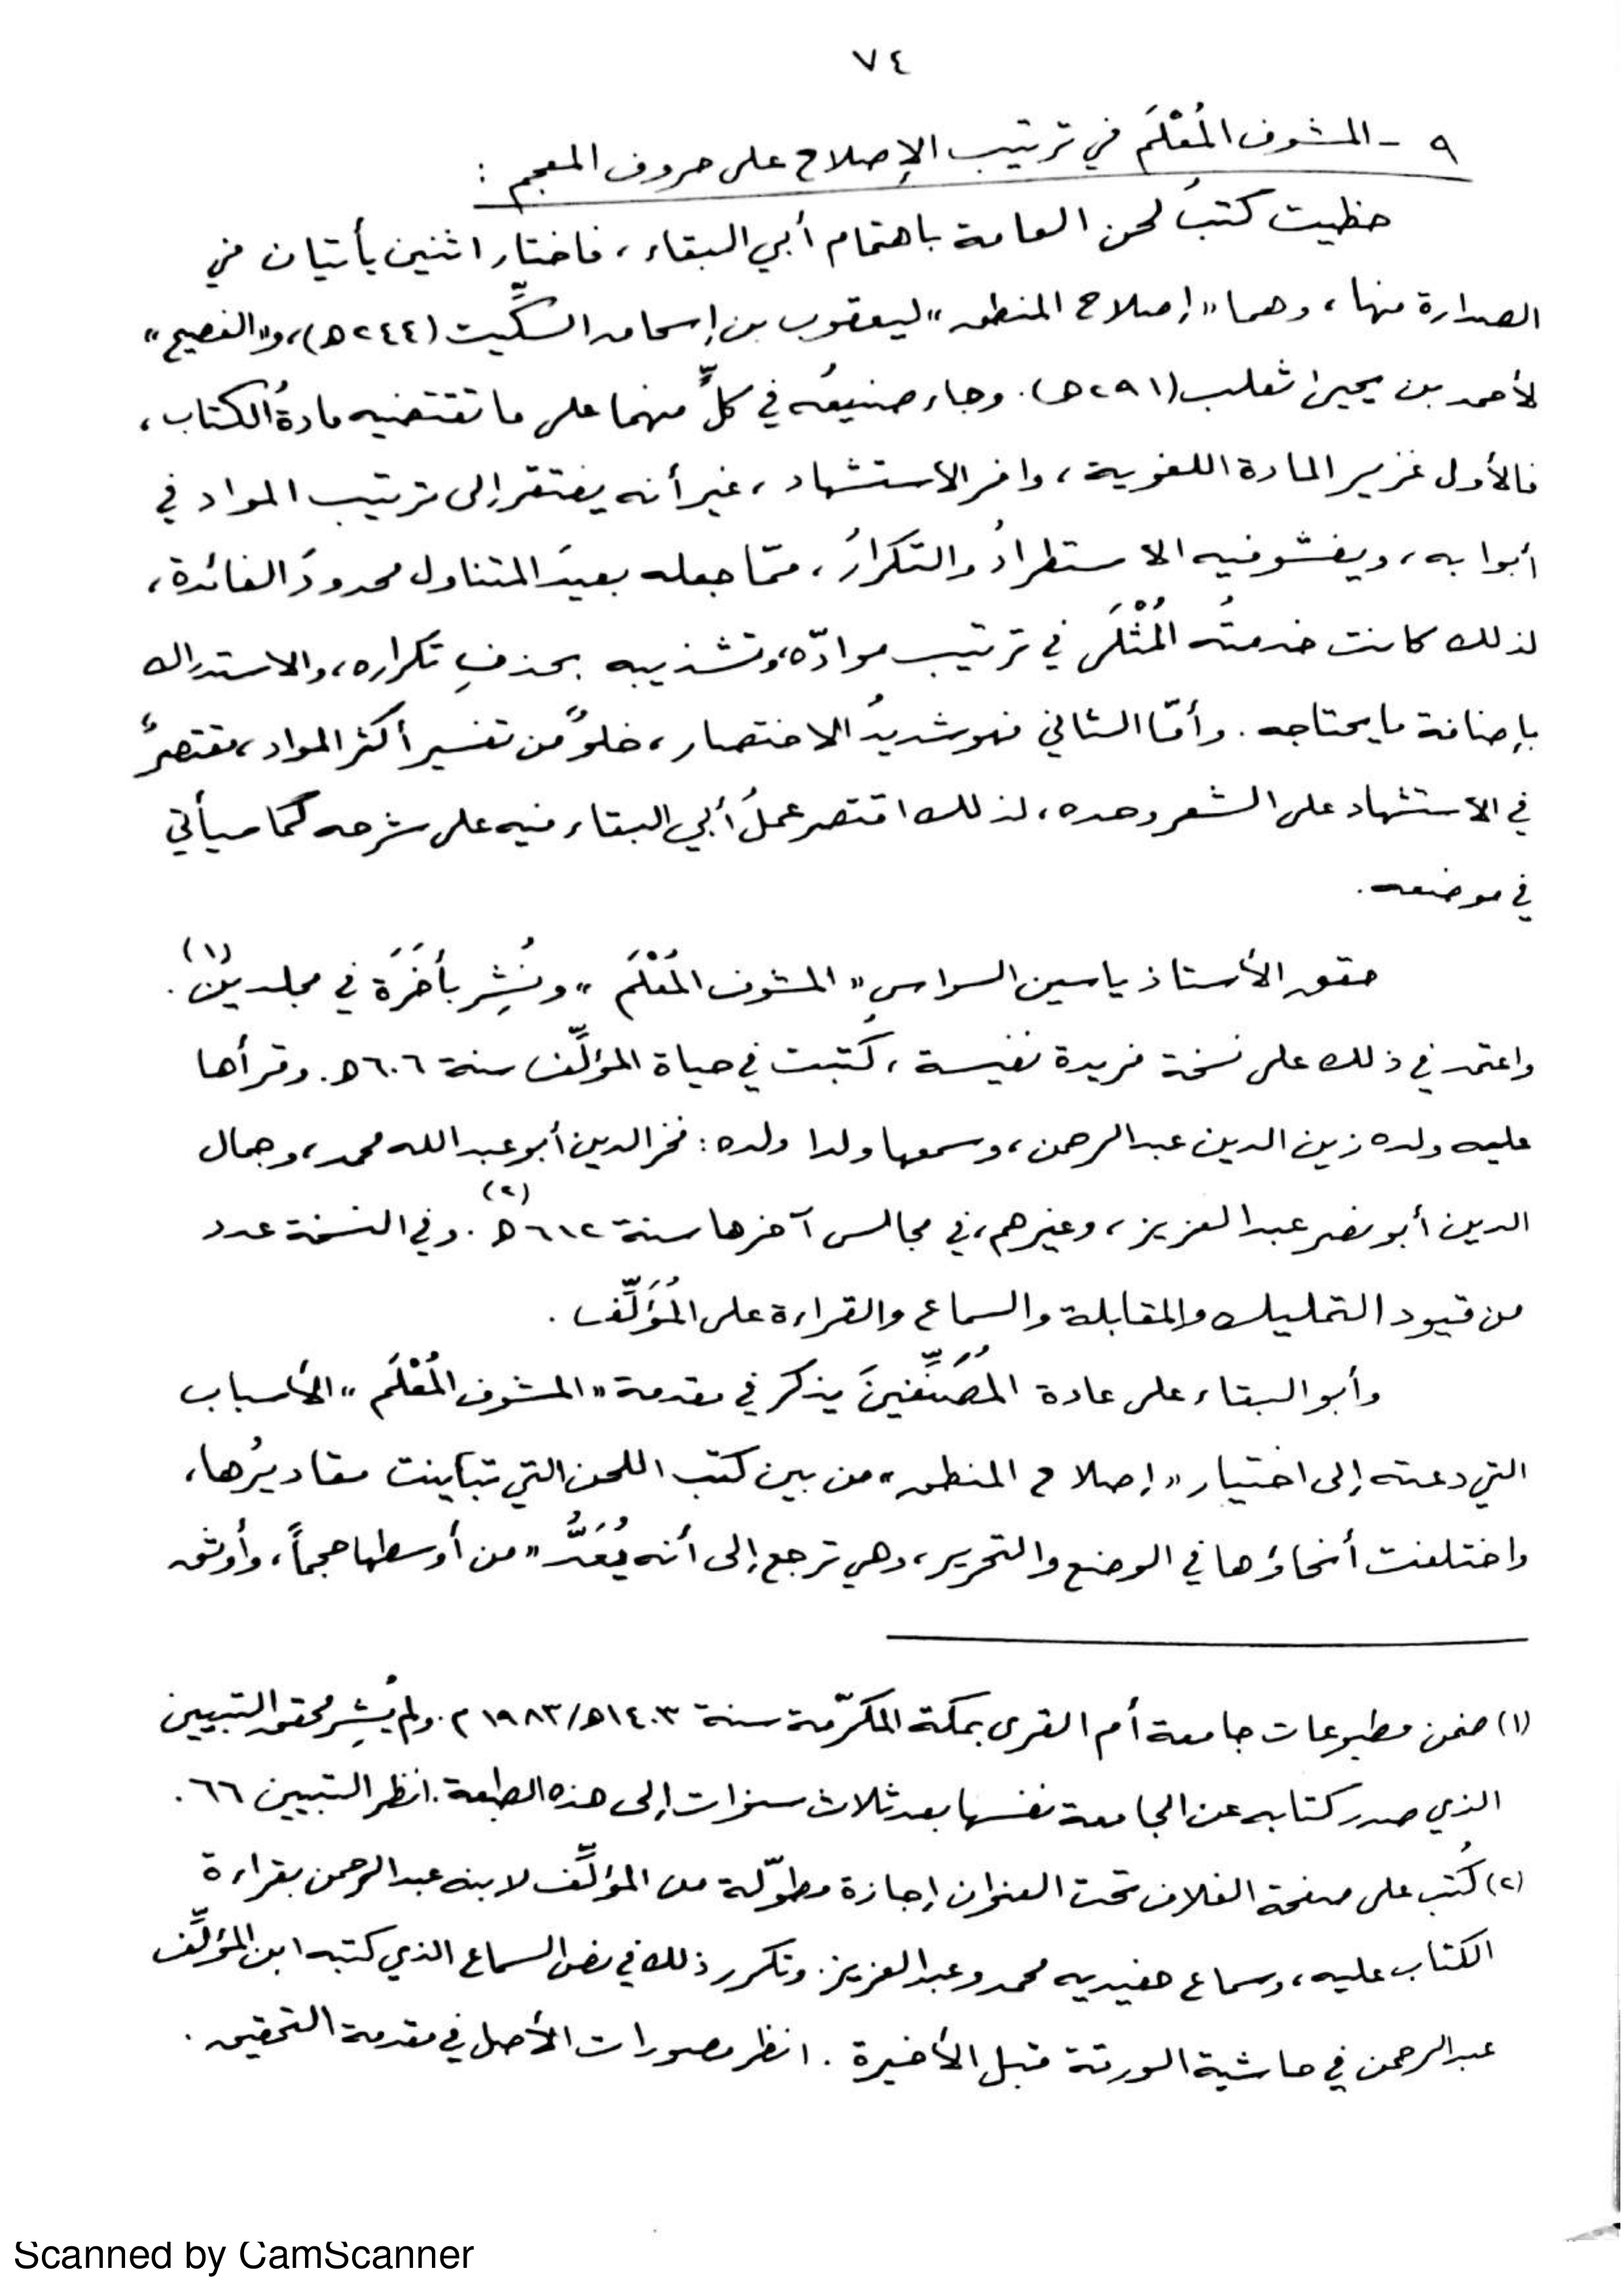 ٧٤
٩ - المشوف المُعْلَم في ترتيب الإصلاح على حروف المعجم :
حظيت كتبُ لحن العامة باهتمام أبي البقاء ، فاختار اثنين يأتيان في
الصدارة منها ، وهما « إصلاح المنطق » ليعقوب بن إسحاق السكِّيت (٢٤٤ هـ) ، و« الفصيح »
لأحمد بن يحيى ثعلب (٢٩١ هـ) . وجاء صنيعُه في كلٍّ منهما على ما تقتضيه مادةُ الكتاب ،
فالأول غزير المادة اللغوية ، وافر الاستشهاد ، غير أنه يفتقر إلى ترتيب المواد في
أبوابه ، ويفشو فيه الاستطرادُ والتكرارُ ، ممّا جعله بعيدَ المتناول محدودَ الفائدة ،
لذلك كانت خدمتُه المُثْلَى في ترتيب موادّه ، وتشذيبه بحذفِ تكراره ، والاستدراك
بإضافة ما يحتاجه . وأمّا الثاني فهو شديدُ الاختصار ، خلوٌ من تفسير أكثر المواد ، مقتصرٌ
في الاستشهاد على الشعر وحده ، لذلك اقتصر عملُ أبي البقاء فيه على شرحه كما سيأتي
في موضعه .
حقق الأستاذ ياسين السواس « المشوف المُعْلَم » ونُشِر بأخَرَة في مجلدين (١) .
واعتمد في ذلك على نسخة فريدة نفيسة ، كُتبت في حياة المؤلِّف سنة ٦٠٦ هـ . وقرأها
عليه ولده زين الدين عبد الرحمن ، وسمعها ولدا ولده : فخر الدين أبو عبد الله محمد ، وجمال
الدين أبو نصر عبد العزيز ، وغيرهم ، في مجالس آخرها سنة ٦١٢ هـ (٢) . وفي النسخة عدد
من قيود التمليك والمقابلة والسماع والقراءة على المُؤَلِّف .
وأبو البقاء على عادة المُصَنِّفينَ يذكر في مقدمة « المشوف المُعْلَم » الأسباب
التي دعته إلى اختيار « إصلاح المنطق » من بين كتب اللحن التي تباينت مقاديرُها ،
واختلفت أنحاؤها في الوضع والتحرير ، وهي ترجع إلى أنه يُعَدُّ « من أوسطها حجماً ، وأوثق
(١) ضمن مطبوعات جامعة أم القرى بمكة المكرّمة سنة ١٤٠٣ هـ/١٩٨٣ م . ولم يُشِر محقق التبيين
الذي صدر كتابه عن الجامعة نفسها بعد ثلاث سنوات إلى هذه الطبعة . انظر التبيين ٦٦ .
(٢) كُتب على صفحة الغلاف تحت العنوان إجازة مطوّلة من المؤلِّف لابنه عبد الرحمن بقراءة
الكتاب عليه ، وسماع حفيديه محمد وعبد العزيز . وتكرر ذلك في نص السماع الذي كتبه ابن المؤلِّف
عبد الرحمن في حاشية الورقة قبل الأخيرة . انظر مصورات الأصل في مقدمة التحقيق .
Scanned by CamScanner